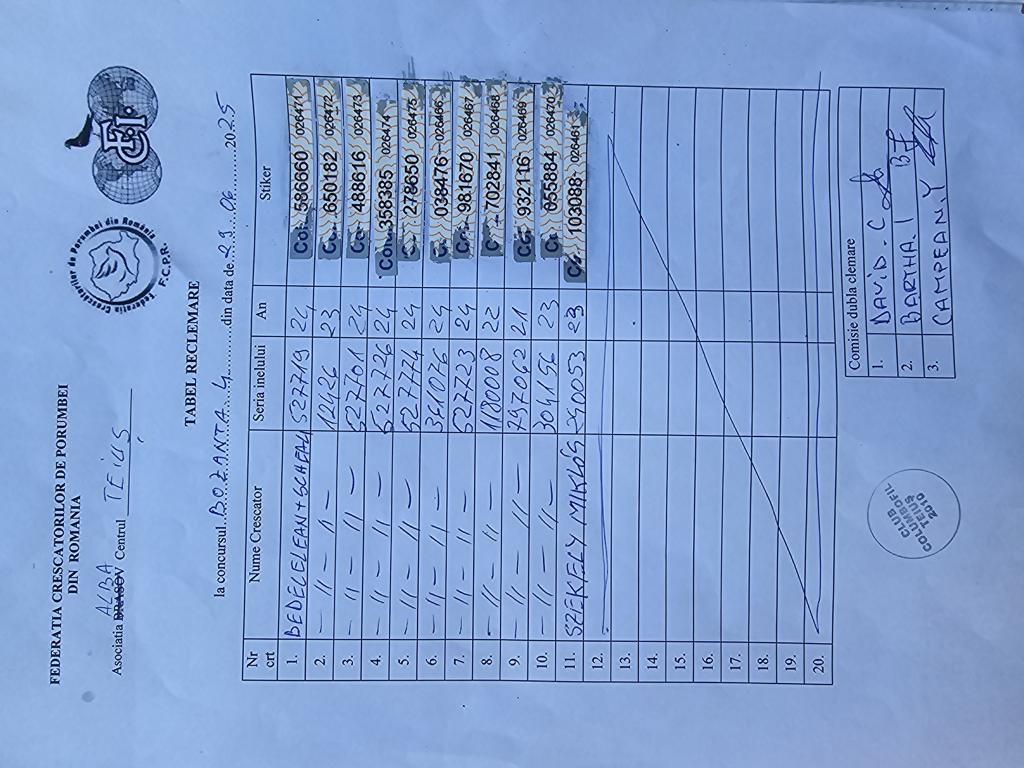 FEDERATIA CRESCATORILOR DE PORUMBEI
DIN ROMANIA
Asociatia BRASOV ALBA Centrul TEIUȘ
Federatia Crescatorilor de Porumbei din Romania
F.C.P.R.
TABEL RECLEMARE
la concursul BOZANTA 4 din data de 29.06.2025
Nr crt Nume Crescator Seria inelului An Stiker
1. BEDECELEAN + 527719 24 586860 026471
2. -11- 12426 23 650182 026472
3. -11- 527701 24 488616 026473
4. -11- 527726 24 358385 026474
5. -11- 527774 24 278650 026475
6. -11- 24 038476 026466
7. -11- 527723 24 981670 026467
8. -11- 1180008 22 702841 026468
9. -11- 297062 21 932716 026469
10. -11- 304156 23 955884 026470
11. SZEKELY MIKLÓS 290053 23 103088 026461
12.
13.
14.
15.
16.
17.
18.
19.
20.
Comisie dubla clemare
1. DAVID. C
2. BARTHA. I
3. CAMPEAN. Y
CLUB
COLUMBOFIL
TEIUȘ
2010